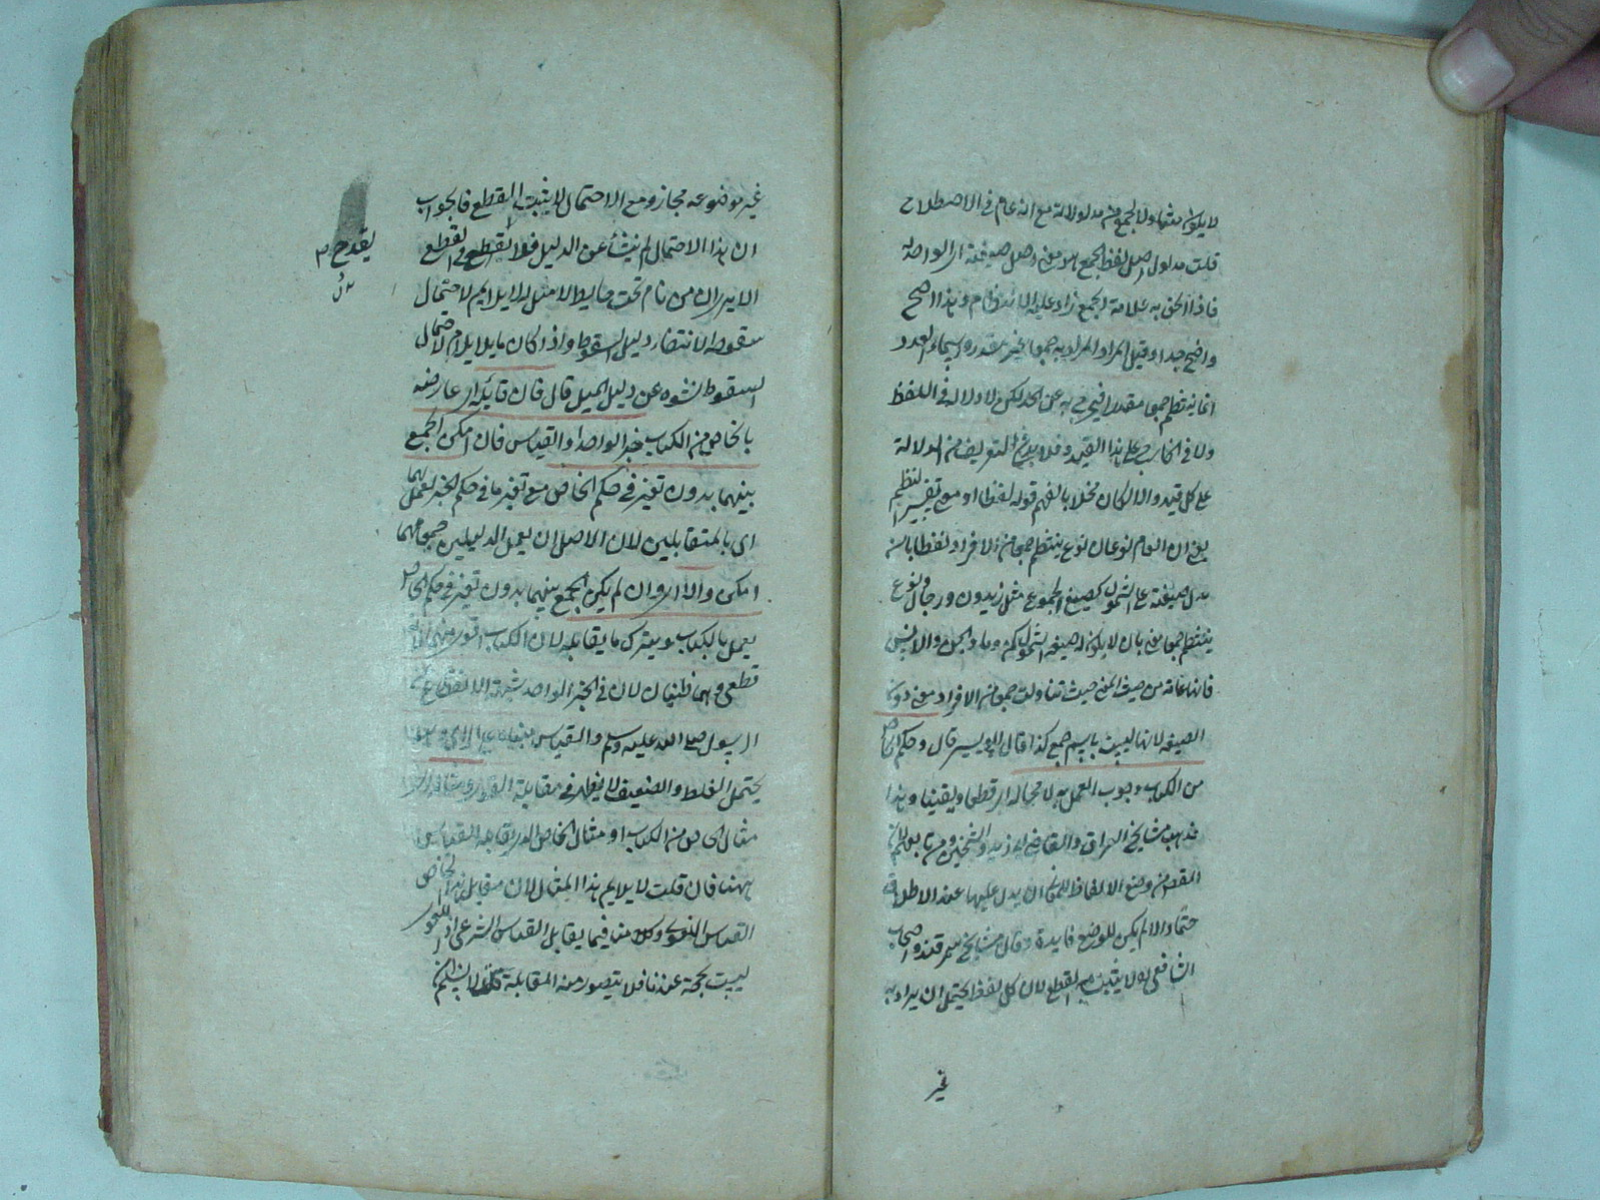 لا يكون متناولا لجمع من مدلولاته مع انه عام في الاصطلاح
قلت مدلول اصل لفظ الجمع هو معنى اصل صيغته اى الواحد
فاذا الحق به علامة الجمع زاد عليه وهذا اصح
واضح جدا وقيل المراد به جمعا غير مقدر واسماء العدد
انما ينتظم جمعا مقدرا فيخرج به عن الحد لكن لا دلالة في اللفظ
ولا في الخارج على هذا القيد فلا بد في التعريف من الدلالة
على كل قيد والا لكان مخلا بالفهم قوله لفظا او معنى تفسير النظم
يعني ان العام نوعان نوع ينتظم جمعا من الافراد لفظا بان
يدل صيغته على الشمول كصيغ الجموع مثل زيدون ورجال ونوع
ينتظم جمعا معنى بان لا يكون صيغة الشمول كمن وما والجن والانس
فانها عامة من حيث المعنى حيث تناولت جمعا من الافراد معنى دون
الصيغة لانها ليست باسم جمع كذا قال ابو اليسر قال وحكم الخاص
من الكتاب وجوب العمل به لا محالة اى قطعا ويقينا وهذا
مذهب مشايخ العراق والقاضى ابى زيد والشيخين ومن تابعهم لان
الغرض من وضع الالفاظ للمعانى ان يدل عليها عند الاطلاق
حتما والا لم يكن للوضع فايدة وقال مشايخ سمرقند واصحاب
الشافعى انه لا يثبت به القطع لان كل لفظ يحتمل ان يراد به
غير
غير موضوعه مجازا ومع الاحتمال لا يثبت القطع فالجواب
ان هذا الاحتمال لم ينشأ عن الدليل فلا يقدح في القطع
يقدح
الا يرى ان من نام تحت حايط لا مثل له لا يلام لاحتمال
سقوطه لانتفاء دليل السقوط واذا كان مايلا يلام لاحتمال
السقوط لنشوه عن دليل الميل قال فان قابله اى عارضه
بالخاص من الكتاب خبر الواحد او القياس فان امكن الجمع
بينهما بدون تغير في حكم الخاص مع تغير ما في حكم الخبر يعمل بهما
اى بالمتقابلين لان الاصل ان يعمل الدليلين جميعا مهما
امكن والا اى وان لم يكن الجمع بينهما بدون تغير في حكم الخاص
يعمل بالكتاب ويترك ما يقابله لان الكتاب اقوى منهما لانه
قطعى وهما ظنيان لان في الخبر الواحد شبهة الانقطاع عن
الرسول صلى الله عليه وسلم والقياس
يحتمل الغلط والضعيف لا يظهر في مقابلة القوى
مثال الخاص من الكتاب او مثال الخاص الذى يقابله القياس
ههنا فان قلت لا يلايم هذا المثال لان مقابل هذا الخاص
القياس اللغوى وكلامنا فيما يقابل القياس الشرعى اذ اللغوى
ليست بحجة عندنا فلا يتصور منه المقابلة قلت لا نسلم